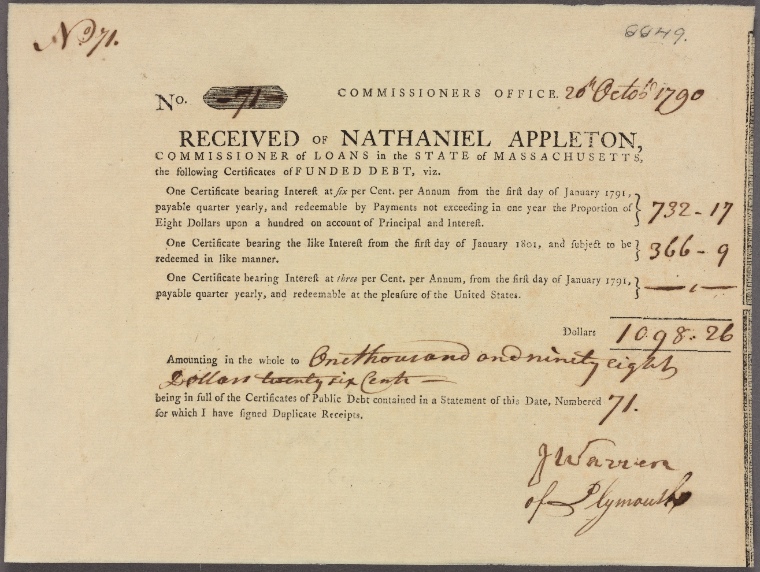 No 71.
6649.
No. 71 COMMISSIONERS OFFICE. 20th Octobr 1790
RECEIVED OF NATHANIEL APPLETON,
COMMISSIONER of LOANS in the STATE of MASSACHUSETTS,
the following Certificates of FUNDED DEBT, viz.
One Certificate bearing Interest at six per Cent. per Annum from the first day of January 1791,
payable quarter yearly, and redeemable by Payments not exceeding in one year the Proportion of } 732-17
Eight Dollars upon a hundred on account of Principal and Interest.
One Certificate bearing the like Interest from the first day of January 1801, and subject to be } 366-9
redeemed in like manner.
One Certificate bearing Interest at three per Cent. per Annum, from the first day of January 1791, }
payable quarter yearly, and redeemable at the pleasure of the United States.
Dollars 1098-26
Amounting in the whole to One thousand and ninety eight
Dollars twenty six Cents
being in full of the Certificates of Public Debt contained in a Statement of this Date, Numbered 71.
for which I have signed Duplicate Receipts.
J Warren
of Plymouth